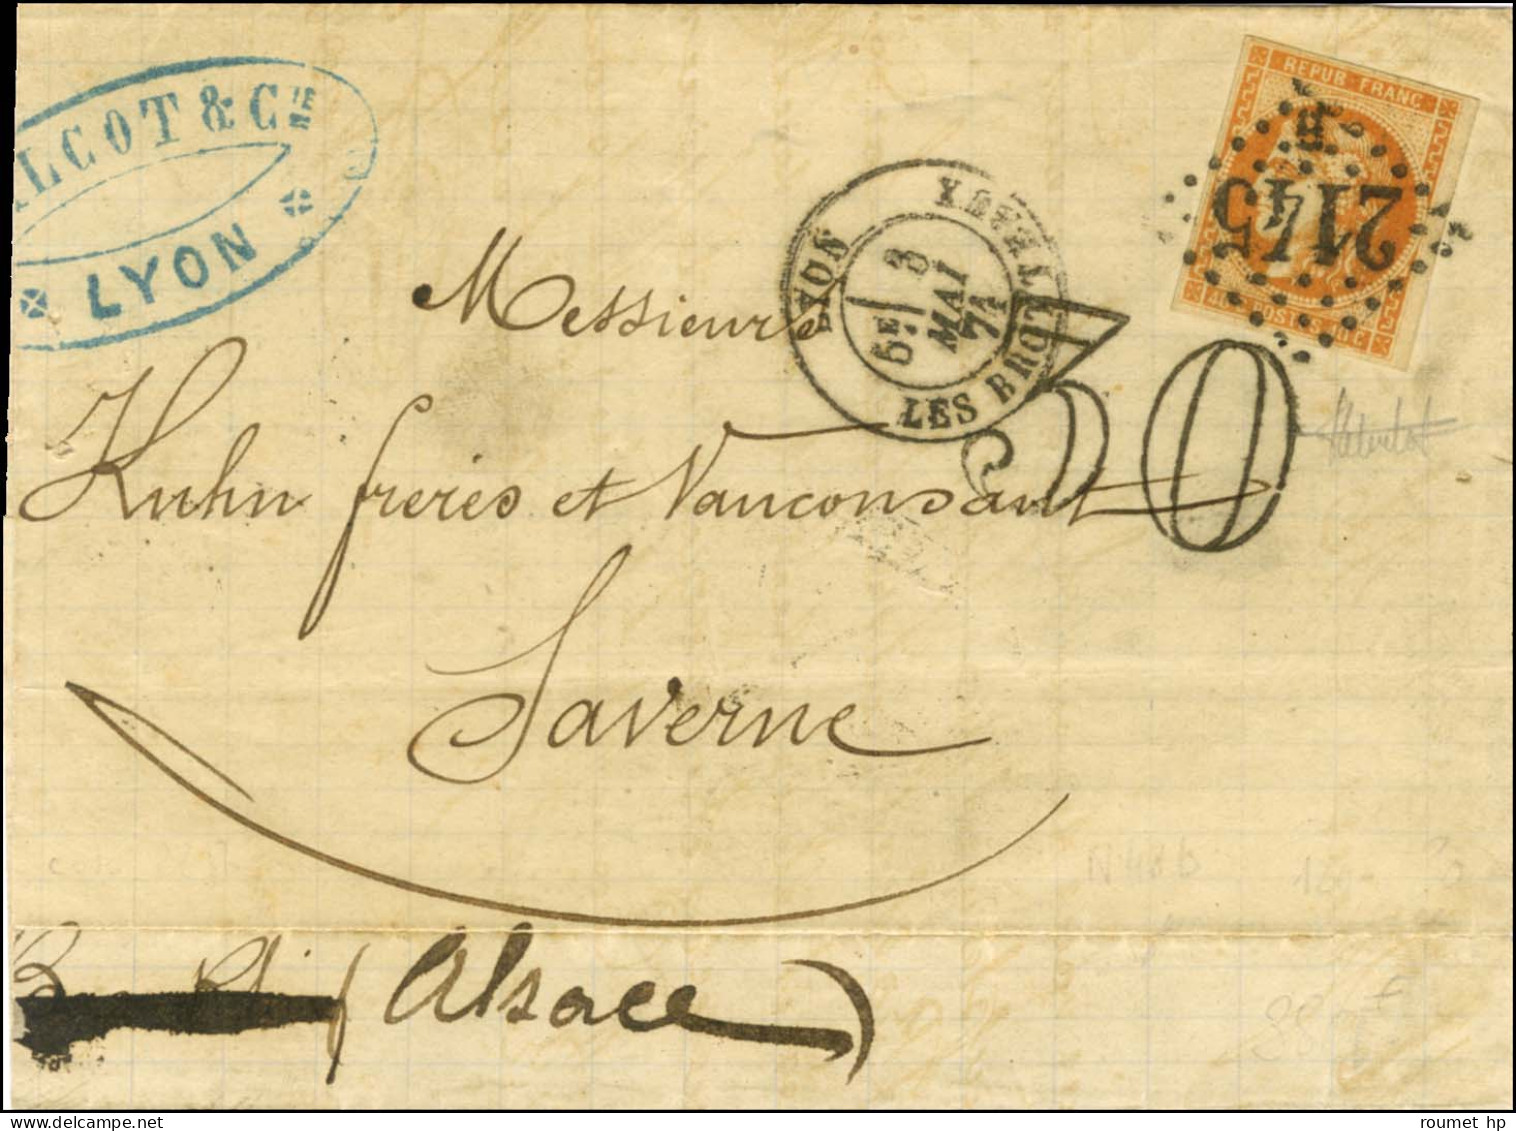 LCOT & CIE
LYON
REPUB. FRANC
2145
POSTES
LYON
LES BROTTEAUX
5E
3
MAI
71
30
Messieurs
Kuhn freres et Vanconsant
Saverne
(Alsace)
roumet hp